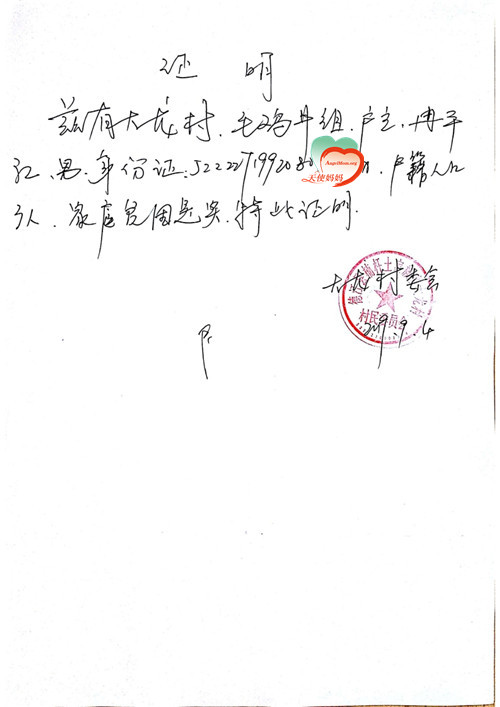 证 明
兹有大龙村.毛鸡井组.户主.冉子
红、男.身份证:522227199208 、户籍人口
3人.家庭贫困是实.特此证明.
AngelMom.org
天使妈妈
大龙村委会
村民委员会
2019.9.4